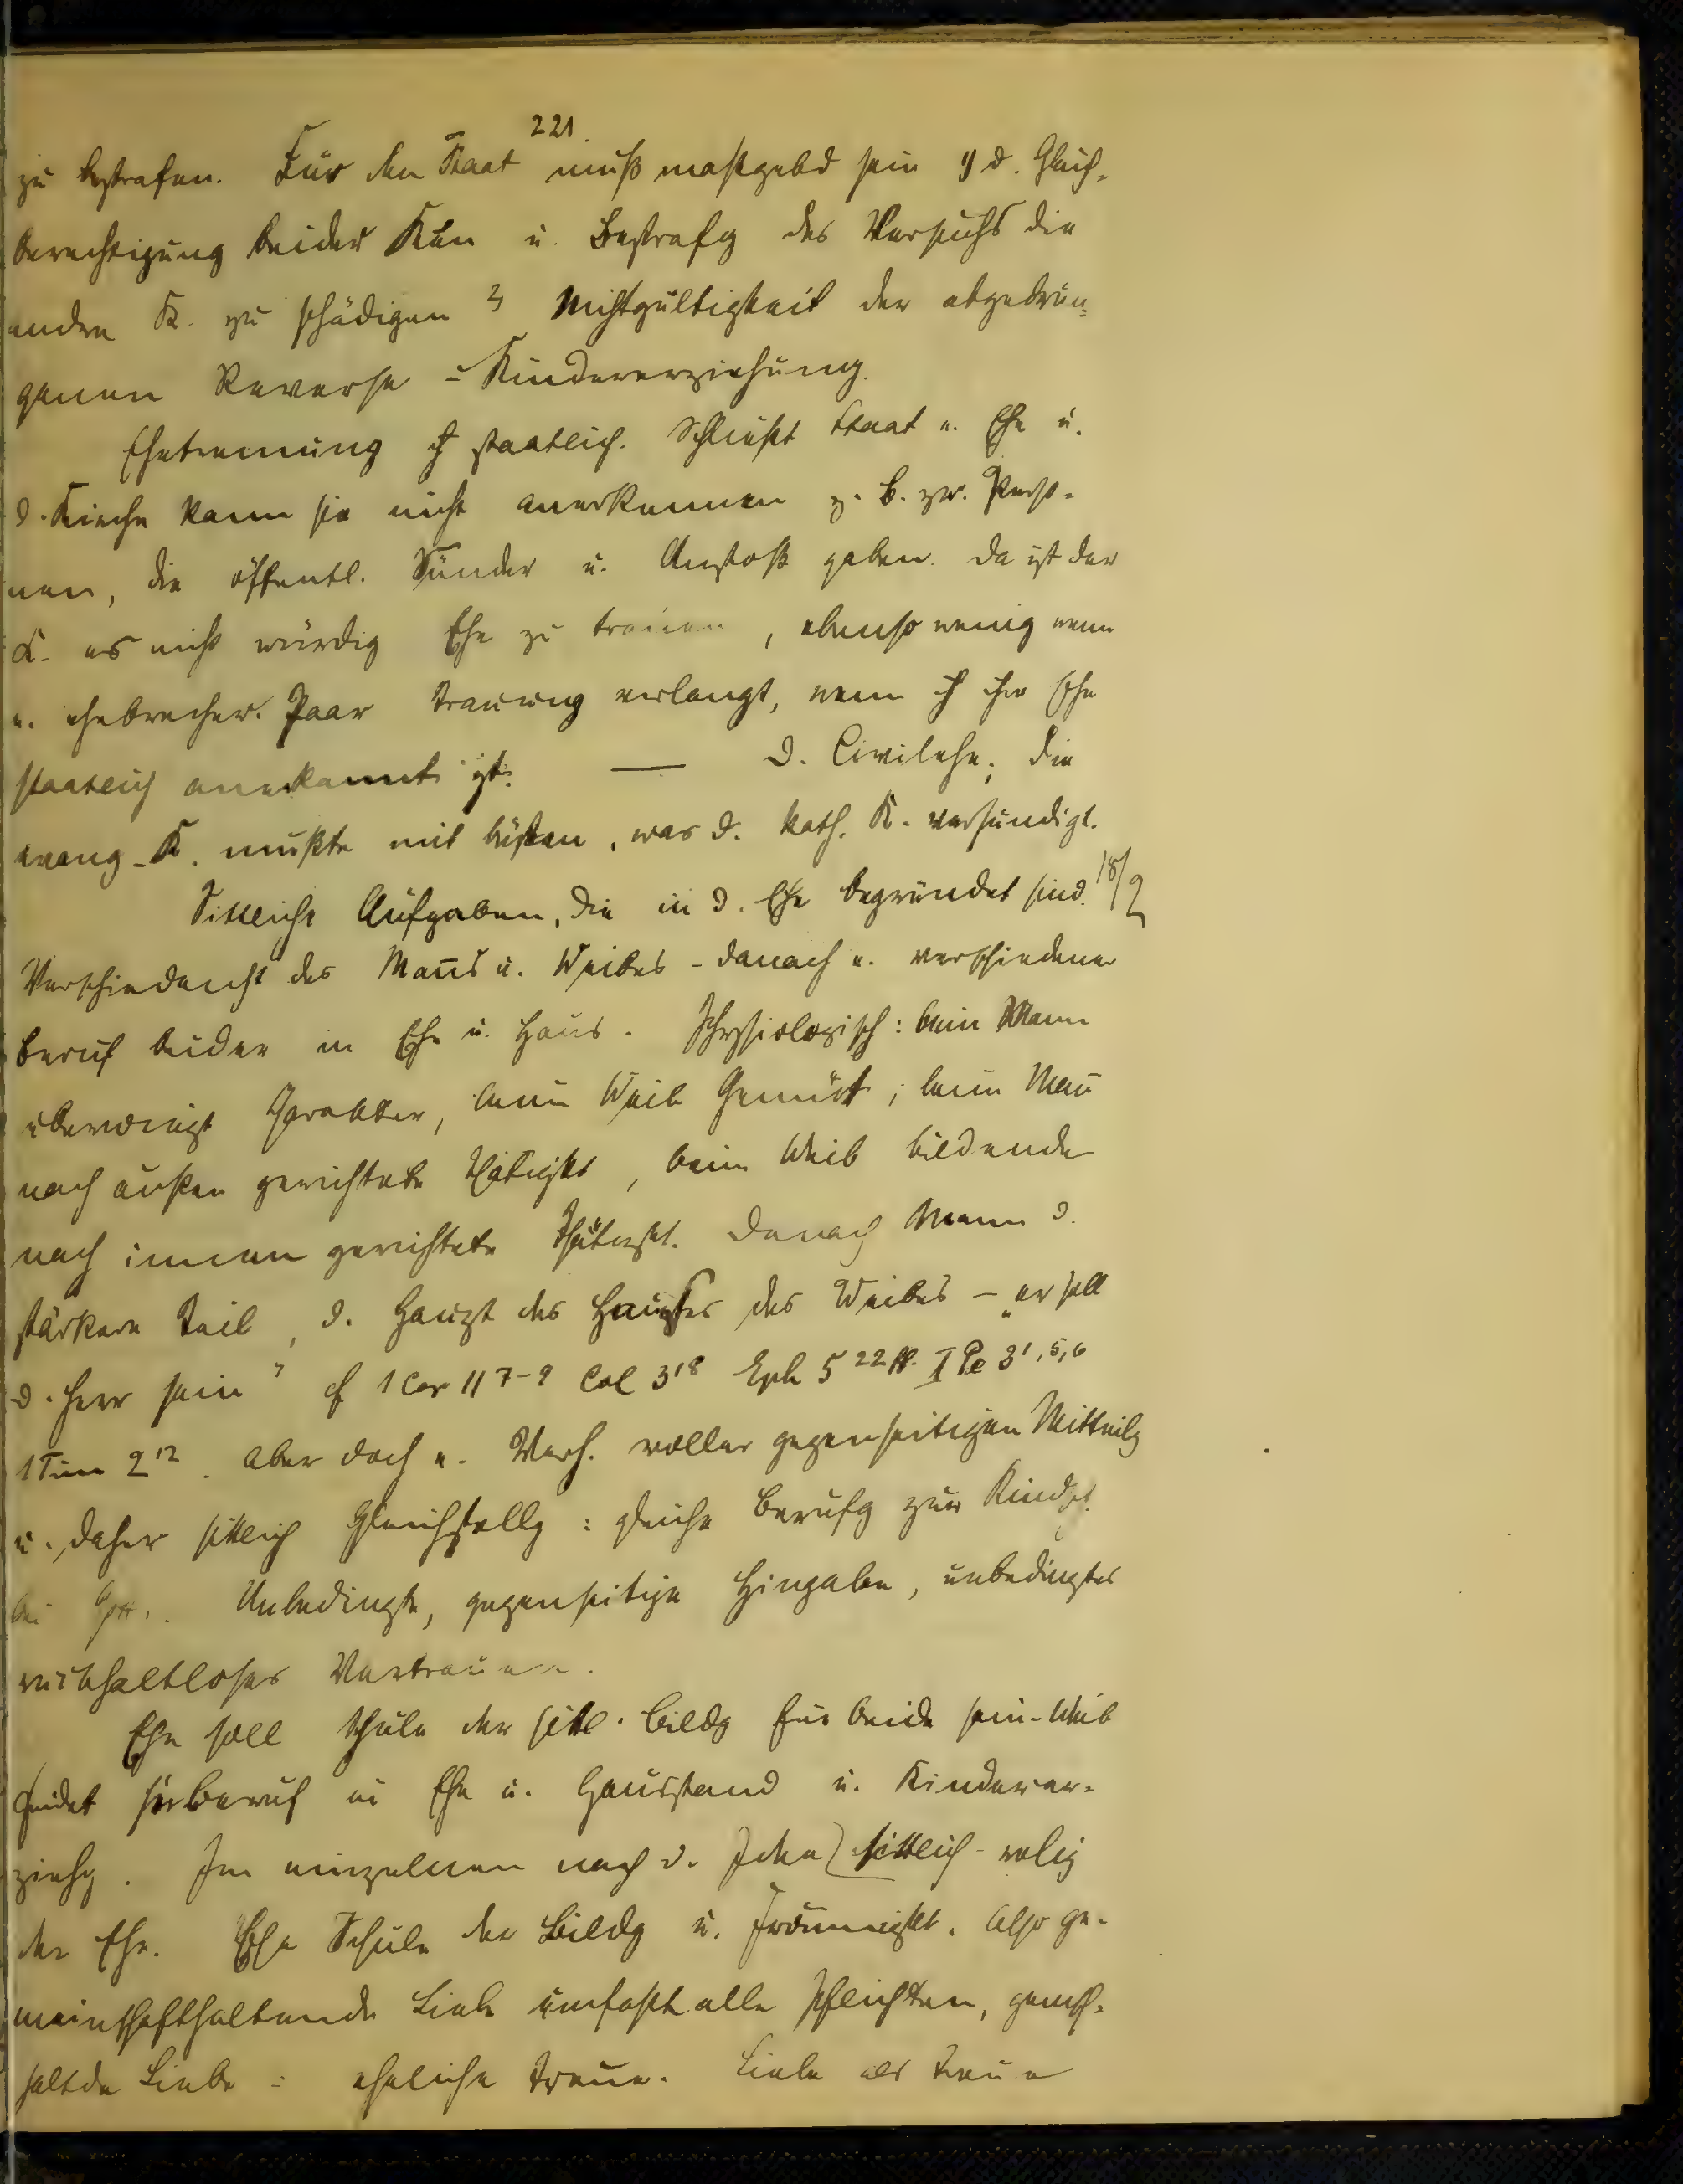 221.
zu bestrafen. Für den Staat muß maßgebd sein 1) d. Gleich-
berechtigung beider KKen u. Bestrafg des Versuchs die
andre K. zu schädigen 2) Nichtgültigkeit der abgedrun-
genen Reverse = Kindererziehung.
Ehetrennung ist staatlich. Schließt Staat e. Ehe u.
d. Kirche kann sie nicht anerkennen z. B. zw. Perso-
nen, die öffentl. Sünder u. Anstoß geben. Da ist der
K. es nicht würdig Ehe zu trauen, ebenso wenig wenn
e. ehebrecher. Paar Trauung verlangt, wenn ihre Ehe
staatlich anerkannt ist. — D. Civilehe; die
evang. K. mußte mit büßen, was d. kath. K. versündigt.
Sittliche Aufgaben, die in d. Ehe begründet sind. 18/2
Verschiedenht des Manns u. Weibes - danach e. verschiedener
Beruf beider in Ehe u. Haus. Physiologisch: beim Mann
überwiegt Charakter, beim Weib Gemüt; beim Mann
nach außen gerichtete Thätigkt, beim Weib bildende
nach innen gerichtete Thätigkt. Danach Mann d.
stärkere Teil, d. Haupt des Hauses des Weibes - „er soll
d. Herr sein" cf 1 Cor 11 7-9 Col 3 18 Eph 5 22 ff. I Pe 3 1,5,6
1 Tim 2 12. Aber doch e. Verh. voller gegenseitigen Mitteilg
u. daher sittlich Gleichstellg: gleiche Berufg zur Kindsch.
bei Gott. Unbedingte, gegenseitige Hingabe, unbedingtes
rückhaltloses Vertrauen.
Ehe soll Schule der sittl. Bildg für beide sein - Weib
findet ihr Beruf in Ehe u. Hausstand u. Kinderer-
ziehg. Im einzelnen nach d. Idee sittlich-relig
der Ehe. Ehe Schule der Bildg u. Frömmigkt. Also ge-
meinschafthaltende Liebe umfaßt alle Pflichten, gemsch.
haltde Liebe = eheliche Treue. Liebe als Treue